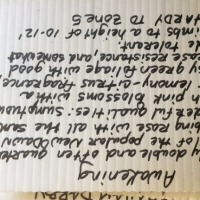 Awakening
double and often
of the popular New Dawn
rose with all the same
qualities. Sumptuous
pink blossoms with a
lemony-a true fragrance,
green foliage with good
resistance, and somewhat
tolerant.
to a height of 10-12'
HARDY TO ZONE 5